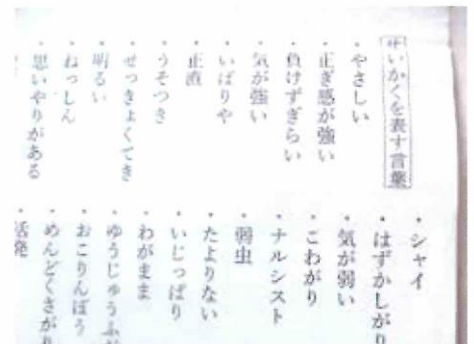 せいかくを表す言葉
・やさしい
・正ぎ感が強い
・負けずぎらい
・気が強い
・いばりや
・正直
・うそつき
・せっきょくてき
・明るい
・ねっしん
・思いやりがある
・シャイ
・はずかしがり
・気が弱い
・こわがり
・ナルシスト
・弱虫
・たよりない
・いじっぱり
・わがまま
・ゆうじゅうふ
・おこりんぼう
・めんどくさがり
活発